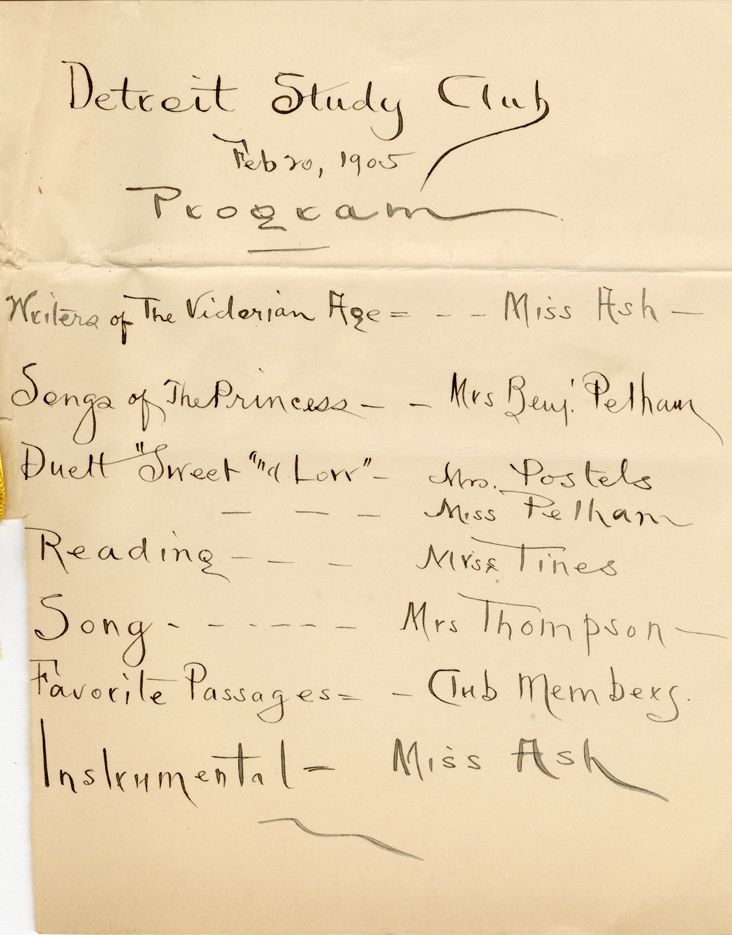 Detroit Study Club
Feb 20, 1905
Program
Writers of The Victorian Age = - - Miss Ash -
Songs of The Princess - - Mrs Benj. Pelham
Duett "Sweet " " -  Mrs. Postels
- - - Miss Pelham
Reading - - - Tines
Song - - - - - - Mrs Thompson -
Favorite Passages = - Club Members.
Instrumental - Miss Ash